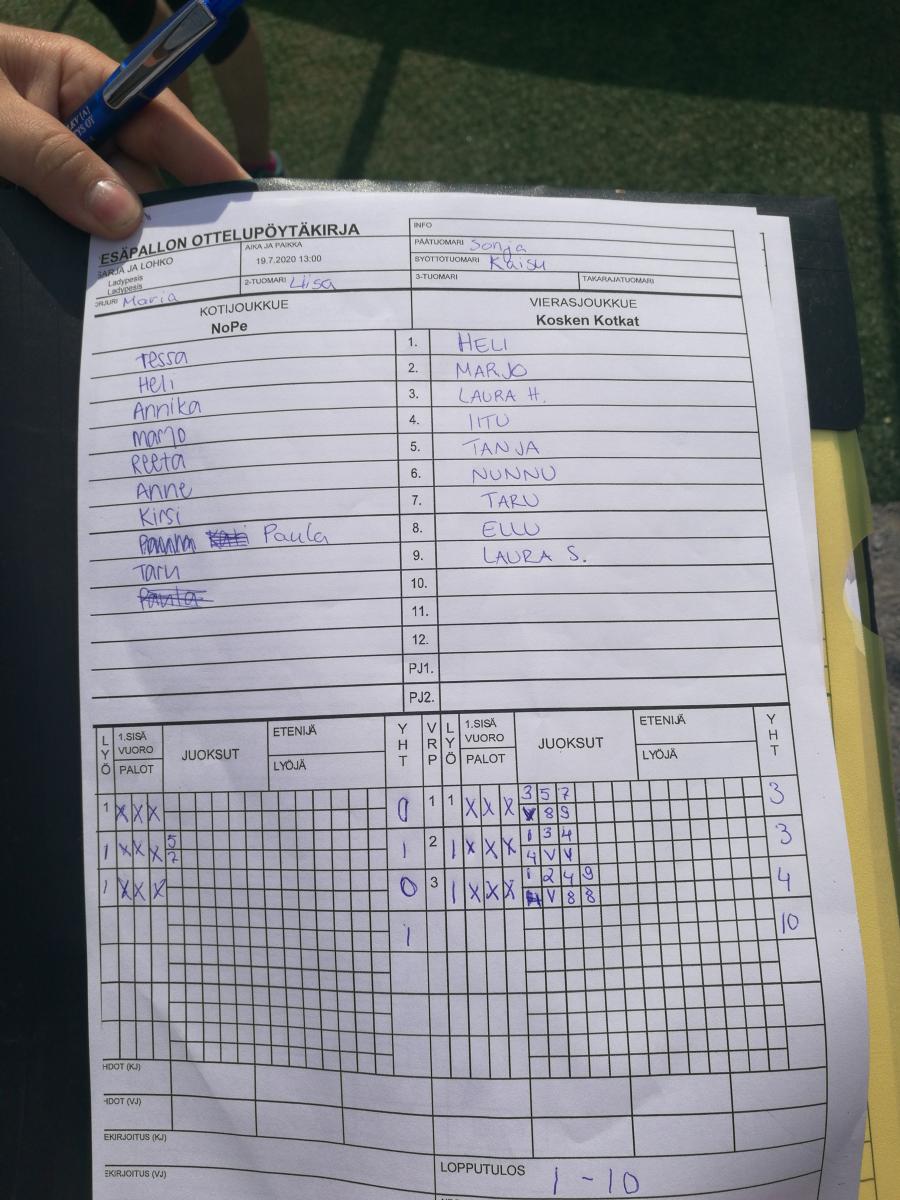 ESÄPALLON OTTELUPÖYTÄKIRJA
SARJA JA LOHKO
Ladypesis
Ladypesis
AIKA JA PAIKKA
19.7.2020 13:00
INFO
PÄÄTUOMARI Sonja
SYÖTTÖTUOMARI Kaisu
Maria
2-TUOMARI Liisa
3-TUOMARI
TAKARAJATUOMARI
KOTIJOUKKUE
NoPe
VIERASJOUKKUE
Kosken Kotkat
Tessa 1. HELI
Heli 2. MARJO
Annika 3. LAURA H.
Marjo 4. IITU
Reeta 5. TANJA
Anne 6. NUNNU
Kirsi 7. TARU
Paula 8. ELLU
Taru 9. LAURA S.
Paula 10.
11.
12.
PJ1.
PJ2.
LYÖ 1.SISÄ VUORO PALOT JUOKSUT ETENIJÄ LYÖJÄ YHT VRP LYÖ 1.SISÄ VUORO PALOT JUOKSUT ETENIJÄ LYÖJÄ YHT
1 X X X 0 1 1 X X X 3 5 7 3
8 9
1 X X X 5 1 2 1 X X X 1 3 4 3
7 4 V V
1 X X X 0 3 1 X X X 1 2 4 9 4
V 8 8
1 10
HDOT (KJ)
HDOT (VJ)
EKIRJOITUS (KJ)
EKIRJOITUS (VJ)
LOPPUTULOS 1-10